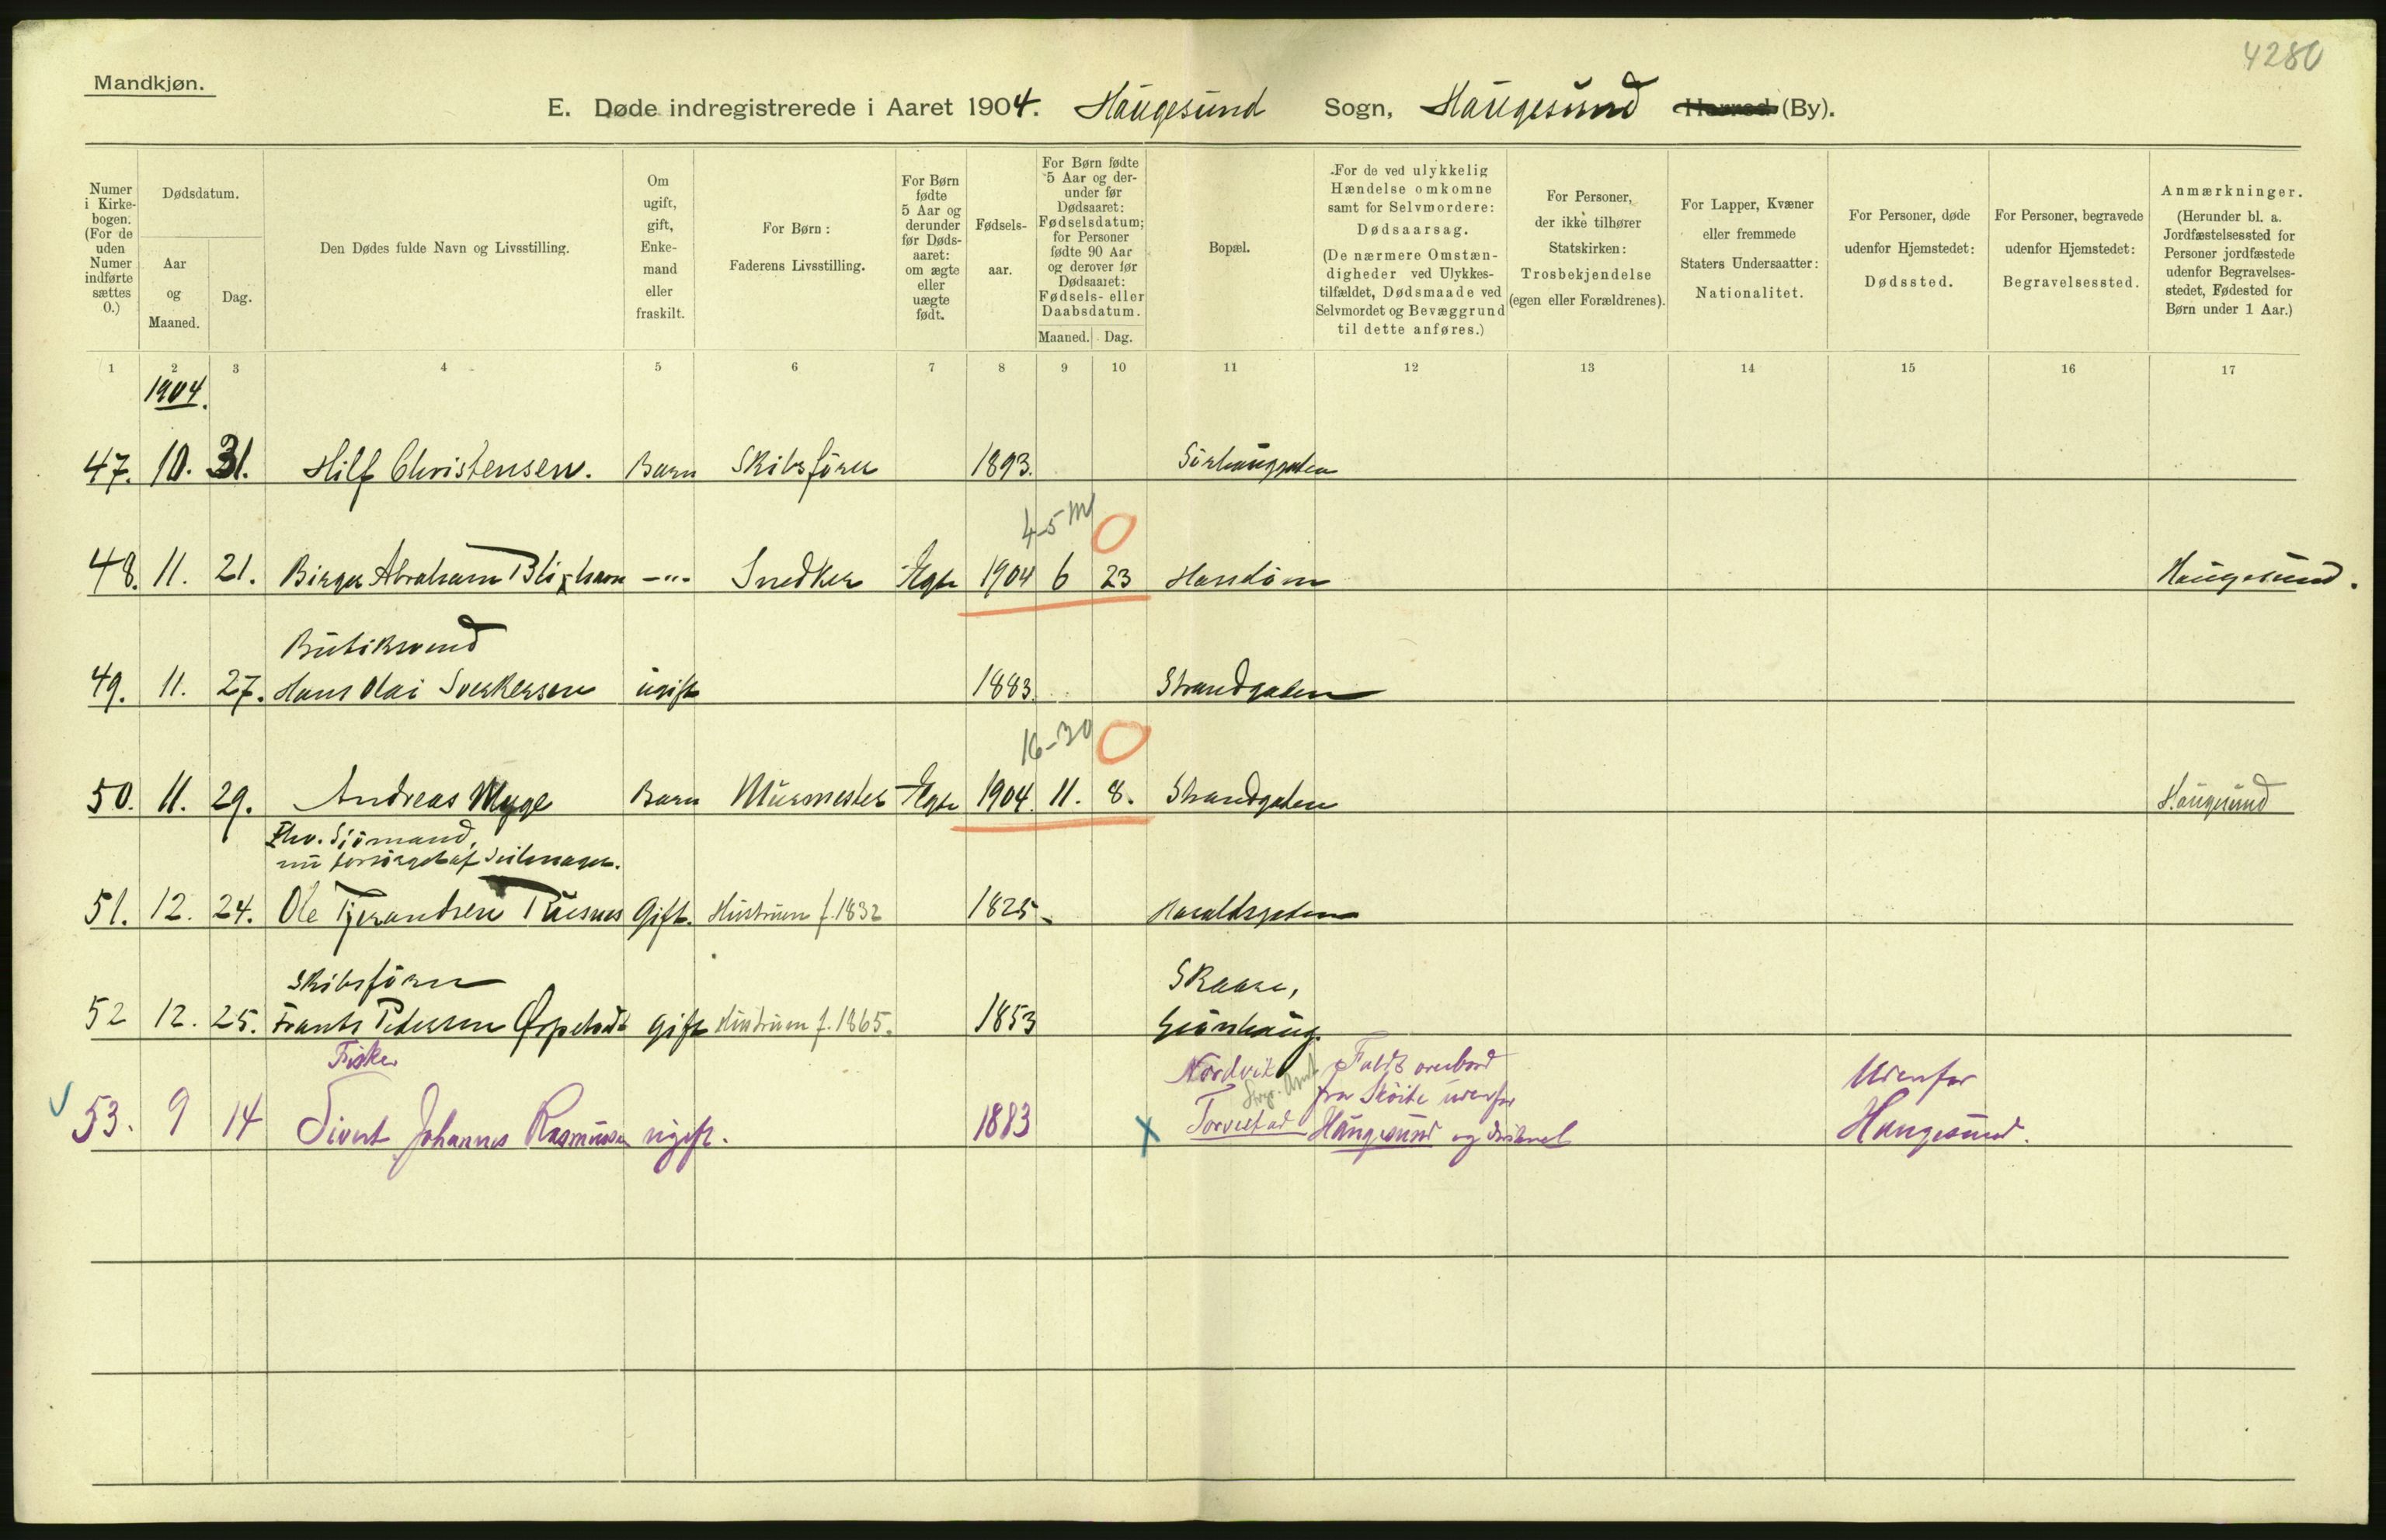 4280
Mandkjøn.
E. Døde indregistrerede i Aaret 1904. Haugesund Sogn, Haugesund Herred (By).
Numer i Kirke-bogen. (For de uden Numer indførte sættes 0.)
Dødsdatum.
Aar og Maaned.
Dag.
Den Dødes fulde Navn og Livsstilling.
Om ugift, gift, Enke-mand eller fraskilt.
For Børn: Faderens Livsstilling.
For Børn fødte 5 Aar og derunder før Døds-aaret: om ægte eller uægte født.
Fødsels-aar.
For Børn fødte 5 Aar og der-under før Dødsaaret: Fødselsdatum; for Personer fødte 90 Aar og derover før Dødsaaret: Fødsels- eller Daabsdatum.
Maaned. Dag.
Bopæl.
For de ved ulykkelig Hændelse omkomne samt for Selvmordere: Dødsaarsag. (De nærmere Omstæn-digheder ved Ulykkes-tilfældet, Dødsmaade ved Selvmordet og Bevæggrund til dette anføres.)
For Personer, der ikke tilhører Statskirken: Trosbekjendelse (egen eller Forældrenes).
For Lapper, Kvæner eller fremmede Staters Undersaatter: Nationalitet.
For Personer, døde udenfor Hjemstedet: Dødssted.
For Personer, begravede udenfor Hjemstedet: Begravelsessted.
Anmærkninger. (Herunder bl. a. Jordfæstelsessted for Personer jordfæstede udenfor Begravelses-stedet, Fødested for Børn under 1 Aar.)
1 2 3 4 5 6 7 8 9 10 11 12 13 14 15 16 17
1904.
47. 10. 31. Hilf Christensen. Barn Skibsfører 1893. Sørhauggaten
4-5 M 0
48. 11. 21. Birger Abraham Blixhavn -"- Snedker Egte 1904 6 23 Hasseløen Haugesund.
Butiksvend
49. 11. 27. Hans Olai Sverkersen ugift 1883. Strandgaten
16-30 0
50. 11. 29. Andreas Myge Barn Murmester Egte 1904. 11. 8. Strandgaten Haugesund
Fhv. Sjømand,
nu forsørget af Seilmager.
51. 12. 24. Ole Tjerandsen Gift. Hustruen f. 1832 1825 Haraldsgaten
Skibsfører Skaare,
52 12. 25. Frantz Pedersen Gift Hustruen f. 1865. 1853 Grønhaug.
Fisker Nordvik Faldt overbord Udenfor
Stvgr. Amt fra Skøite udenfor
53. 9 14 Sivert Johannes Rasmussen ugift. 1883 x Torvestad Haugesund og druknet Haugesund.